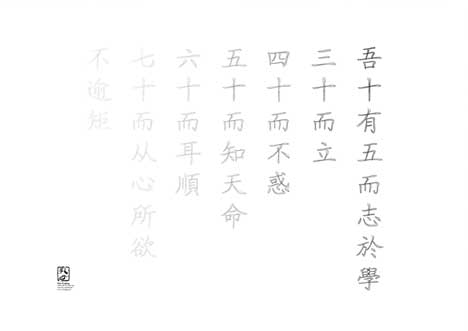 吾十有五而志於學
三十而立
四十而不惑
五十而知天命
六十而耳順
七十而从心所欲
不逾矩